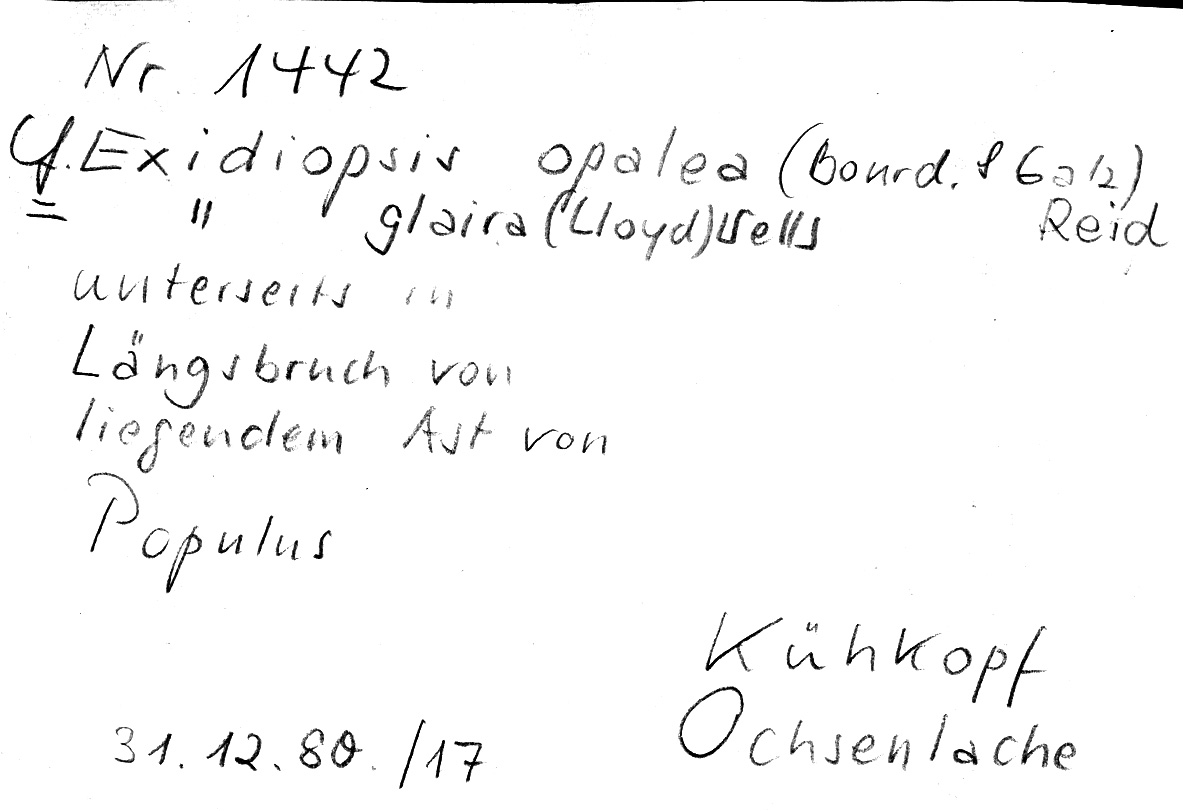 Nr. 1442
Cf. Exidiopsis opalea (Bourd. & Galz)
= " glaira (Lloyd) Wells Reid
unterseits in
Längsbruch von
liegendem Ast von
Populus
Kühkopf
Ochsenlache
31.12.80. /17